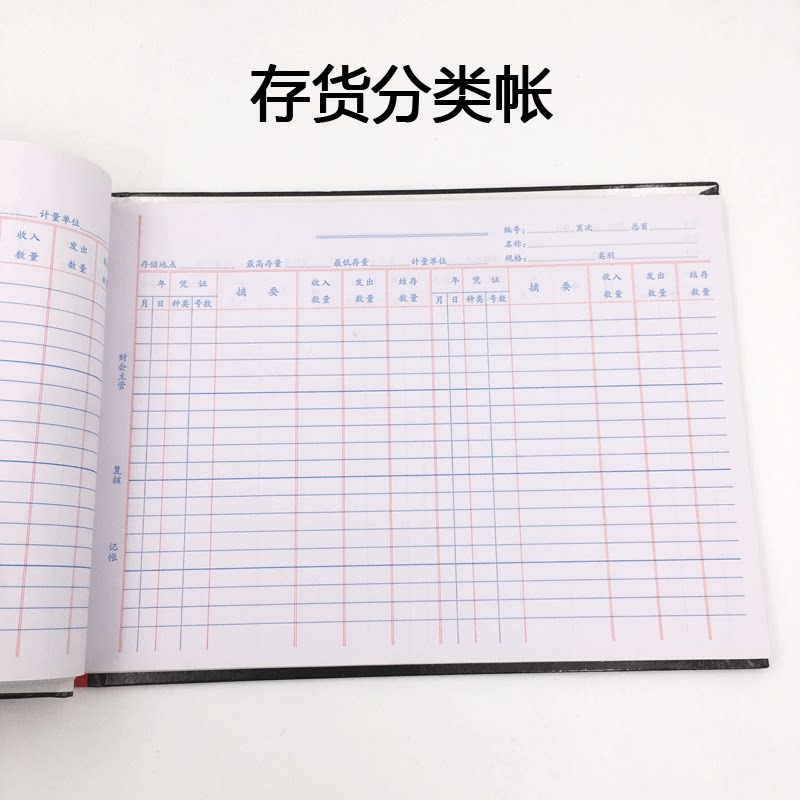 存货分类帐
计量单位
收入
数量
发出
数量
编号: 页次 总页
名称:
规格: 类别
存储地点 最高存量 最低存量 计量单位
年 凭 证 摘 要 收入 数量 发出 数量 结存 数量 年 凭 证 摘 要 收入 数量 发出 数量 结存 数量
月 日 种类 号数 月 日 种类 号数
财会主管
复核
记帐